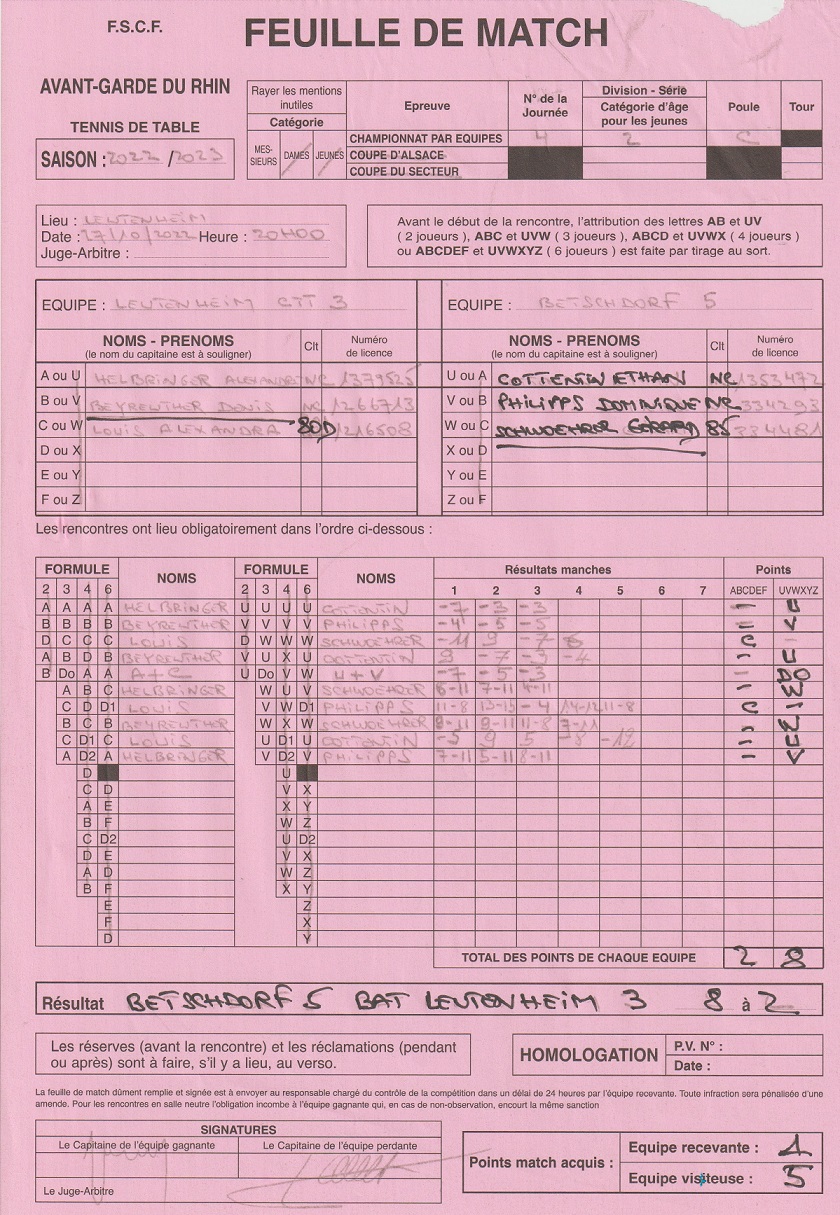 F.S.C.F.
FEUILLE DE MATCH
AVANT-GARDE DU RHIN
TENNIS DE TABLE
SAISON : 2022 / 2023
Rayer les mentions inutiles
Catégorie
MES-SIEURS DAMES JEUNES
Epreuve
N° de la Journée
Division - Série
Catégorie d'âge pour les jeunes
Poule
Tour
CHAMPIONNAT PAR EQUIPES 4 2 C
COUPE D'ALSACE
COUPE DU SECTEUR
Lieu : LEUTENHEIM
Date : 27/10/2022 Heure : 20H00
Juge-Arbitre :
Avant le début de la rencontre, l'attribution des lettres AB et UV
( 2 joueurs ), ABC et UVW ( 3 joueurs ), ABCD et UVWX ( 4 joueurs )
ou ABCDEF et UVWXYZ ( 6 joueurs ) est faite par tirage au sort.
EQUIPE : LEUTENHEIM CTT 3
EQUIPE : BETSCHDORF 5
NOMS - PRENOMS Clt Numéro de licence
(le nom du capitaine est à souligner)
NOMS - PRENOMS Clt Numéro de licence
(le nom du capitaine est à souligner)
A ou U HELBRINGER ALEXANDRE NC 1379525 U ou A COTTENTIN ETHAN NC 1353472
B ou V BEYREUTHER DENIS NC 1266713 V ou B PHILIPPS DOMINIQUE NC 334293
C ou W LOUIS ALEXANDRA 80D 1216508 W ou C SCHWOEHRER GERARD 85 334481
D ou X X ou D
E ou Y Y ou E
F ou Z Z ou F
Les rencontres ont lieu obligatoirement dans l'ordre ci-dessous :
FORMULE NOMS FORMULE NOMS Résultats manches Points
2 3 4 6 2 3 4 6 1 2 3 4 5 6 7 ABCDEF UVWXYZ
A A A A HELBRINGER U U U U COTTENTIN -7 -3 -3 - U
B B B B BEYREUTHER V V V V PHILIPPS -4 -5 -5 - V
D C C C LOUIS D W W W SCHWOEHRER -11 9 -7 6 C -
A B D B BEYREUTHER V U X U COTTENTIN 9 -7 -3 -4 - U
B Do A A A+C U Do V W U+V -7 -5 -3 - DO
A B C HELBRINGER W U V SCHWOEHRER 6-11 7-11 4-11 - W
C D D1 LOUIS V W D1 PHILIPPS 11-8 13-15 -4 14-12 11-8 C -
B C B BEYREUTHER W X W SCHWOEHRER 9-11 9-11 11-8 7-11 - W
C D1 C LOUIS U D1 U COTTENTIN -5 9 5 -8 -12 - U
A D2 A HELBRINGER V D2 V PHILIPPS 7-11 5-11 8-11 - V
D U
C D V X
A E X Y
B F W Z
C D2 U D2
D E V X
A D W Z
B F X Y
E Z
F X
D Y
TOTAL DES POINTS DE CHAQUE EQUIPE 2 8
Résultat BETSCHDORF 5 BAT LEUTENHEIM 3 8 à 2
Les réserves (avant la rencontre) et les réclamations (pendant
ou après) sont à faire, s'il y a lieu, au verso.
HOMOLOGATION
P.V. N° :
Date :
La feuille de match dûment remplie et signée est à envoyer au responsable chargé du contrôle de la compétition dans un délai de 24 heures par l'équipe recevante. Toute infraction sera pénalisée d'une
amende. Pour les rencontres en salle neutre l'obligation incombe à l'équipe gagnante qui, en cas de non-observation, encourt la même sanction
SIGNATURES
Le Capitaine de l'équipe gagnante Le Capitaine de l'équipe perdante
Le Juge-Arbitre
Points match acquis :
Equipe recevante : 1
Equipe visiteuse : 5